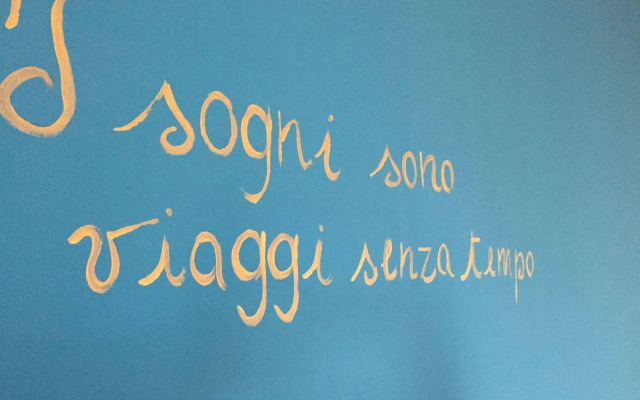 I sogni sono
viaggi senza tempo